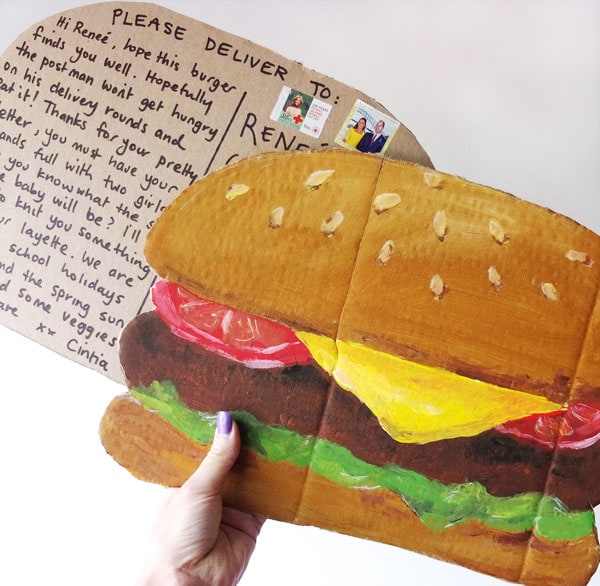 PLEASE DELIVER TO:
Hi Reneé, hope this burger
finds you well. Hopefully
the postman won't get hungry
on his delivery rounds and
eat it! Thanks for your pretty
letter, you must have your
hands full with two girls
you know what the
baby will be? I'll
knit you something
layette. We are
school holidays
the spring sun
some veggies
xx Cintia
RENE